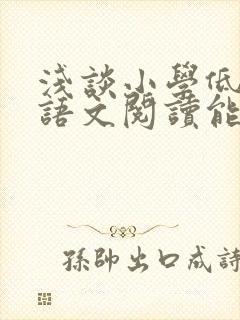 淺談小學低
語文閱讀能
孫帥出口成詩